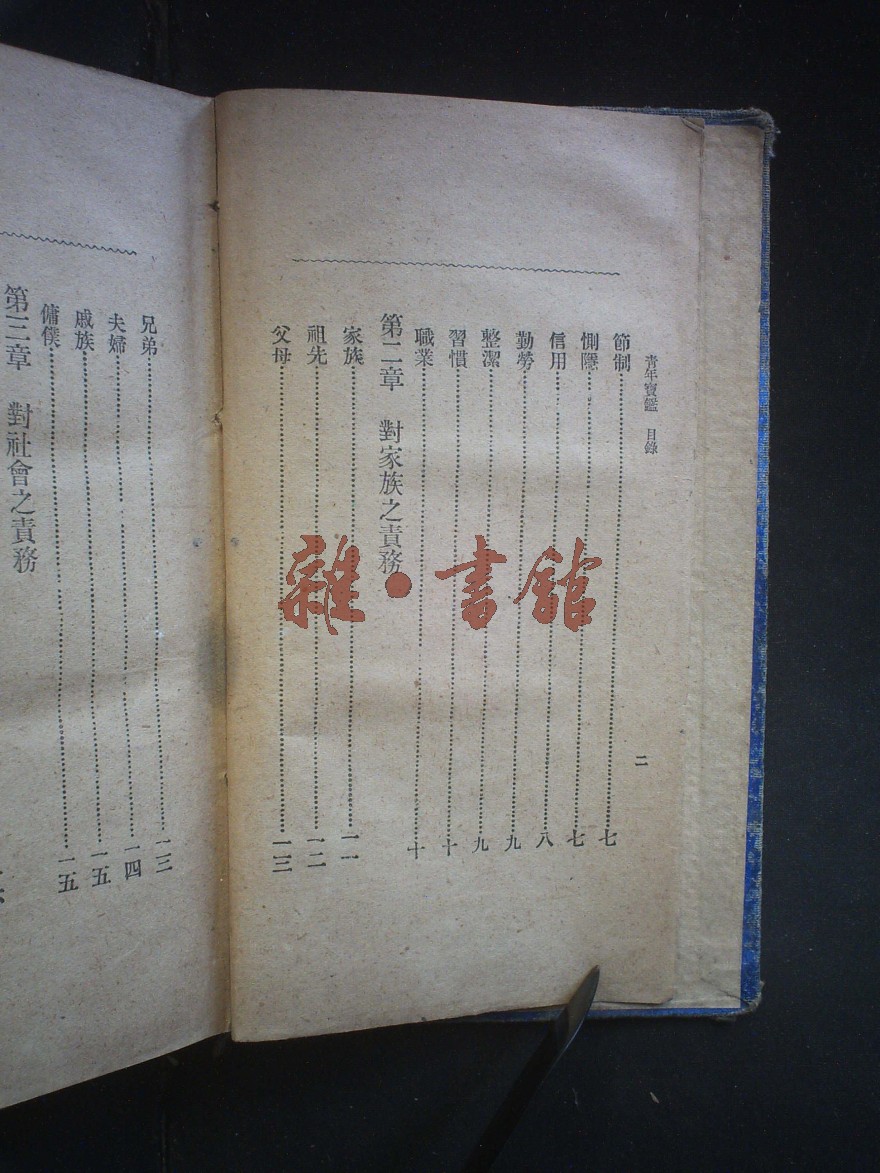 青年寶鑑 目錄
二
節制……七
惻隱……七
信用……八
勤勞……九
整潔……九
習慣……十
職業……十
第二章 對家族之責務
家族……一一
祖先……一二
父母……一三
兄弟……一三
夫婦……一四
戚族……一五
傭僕……一五
第三章 對社會之責務
雜·書館